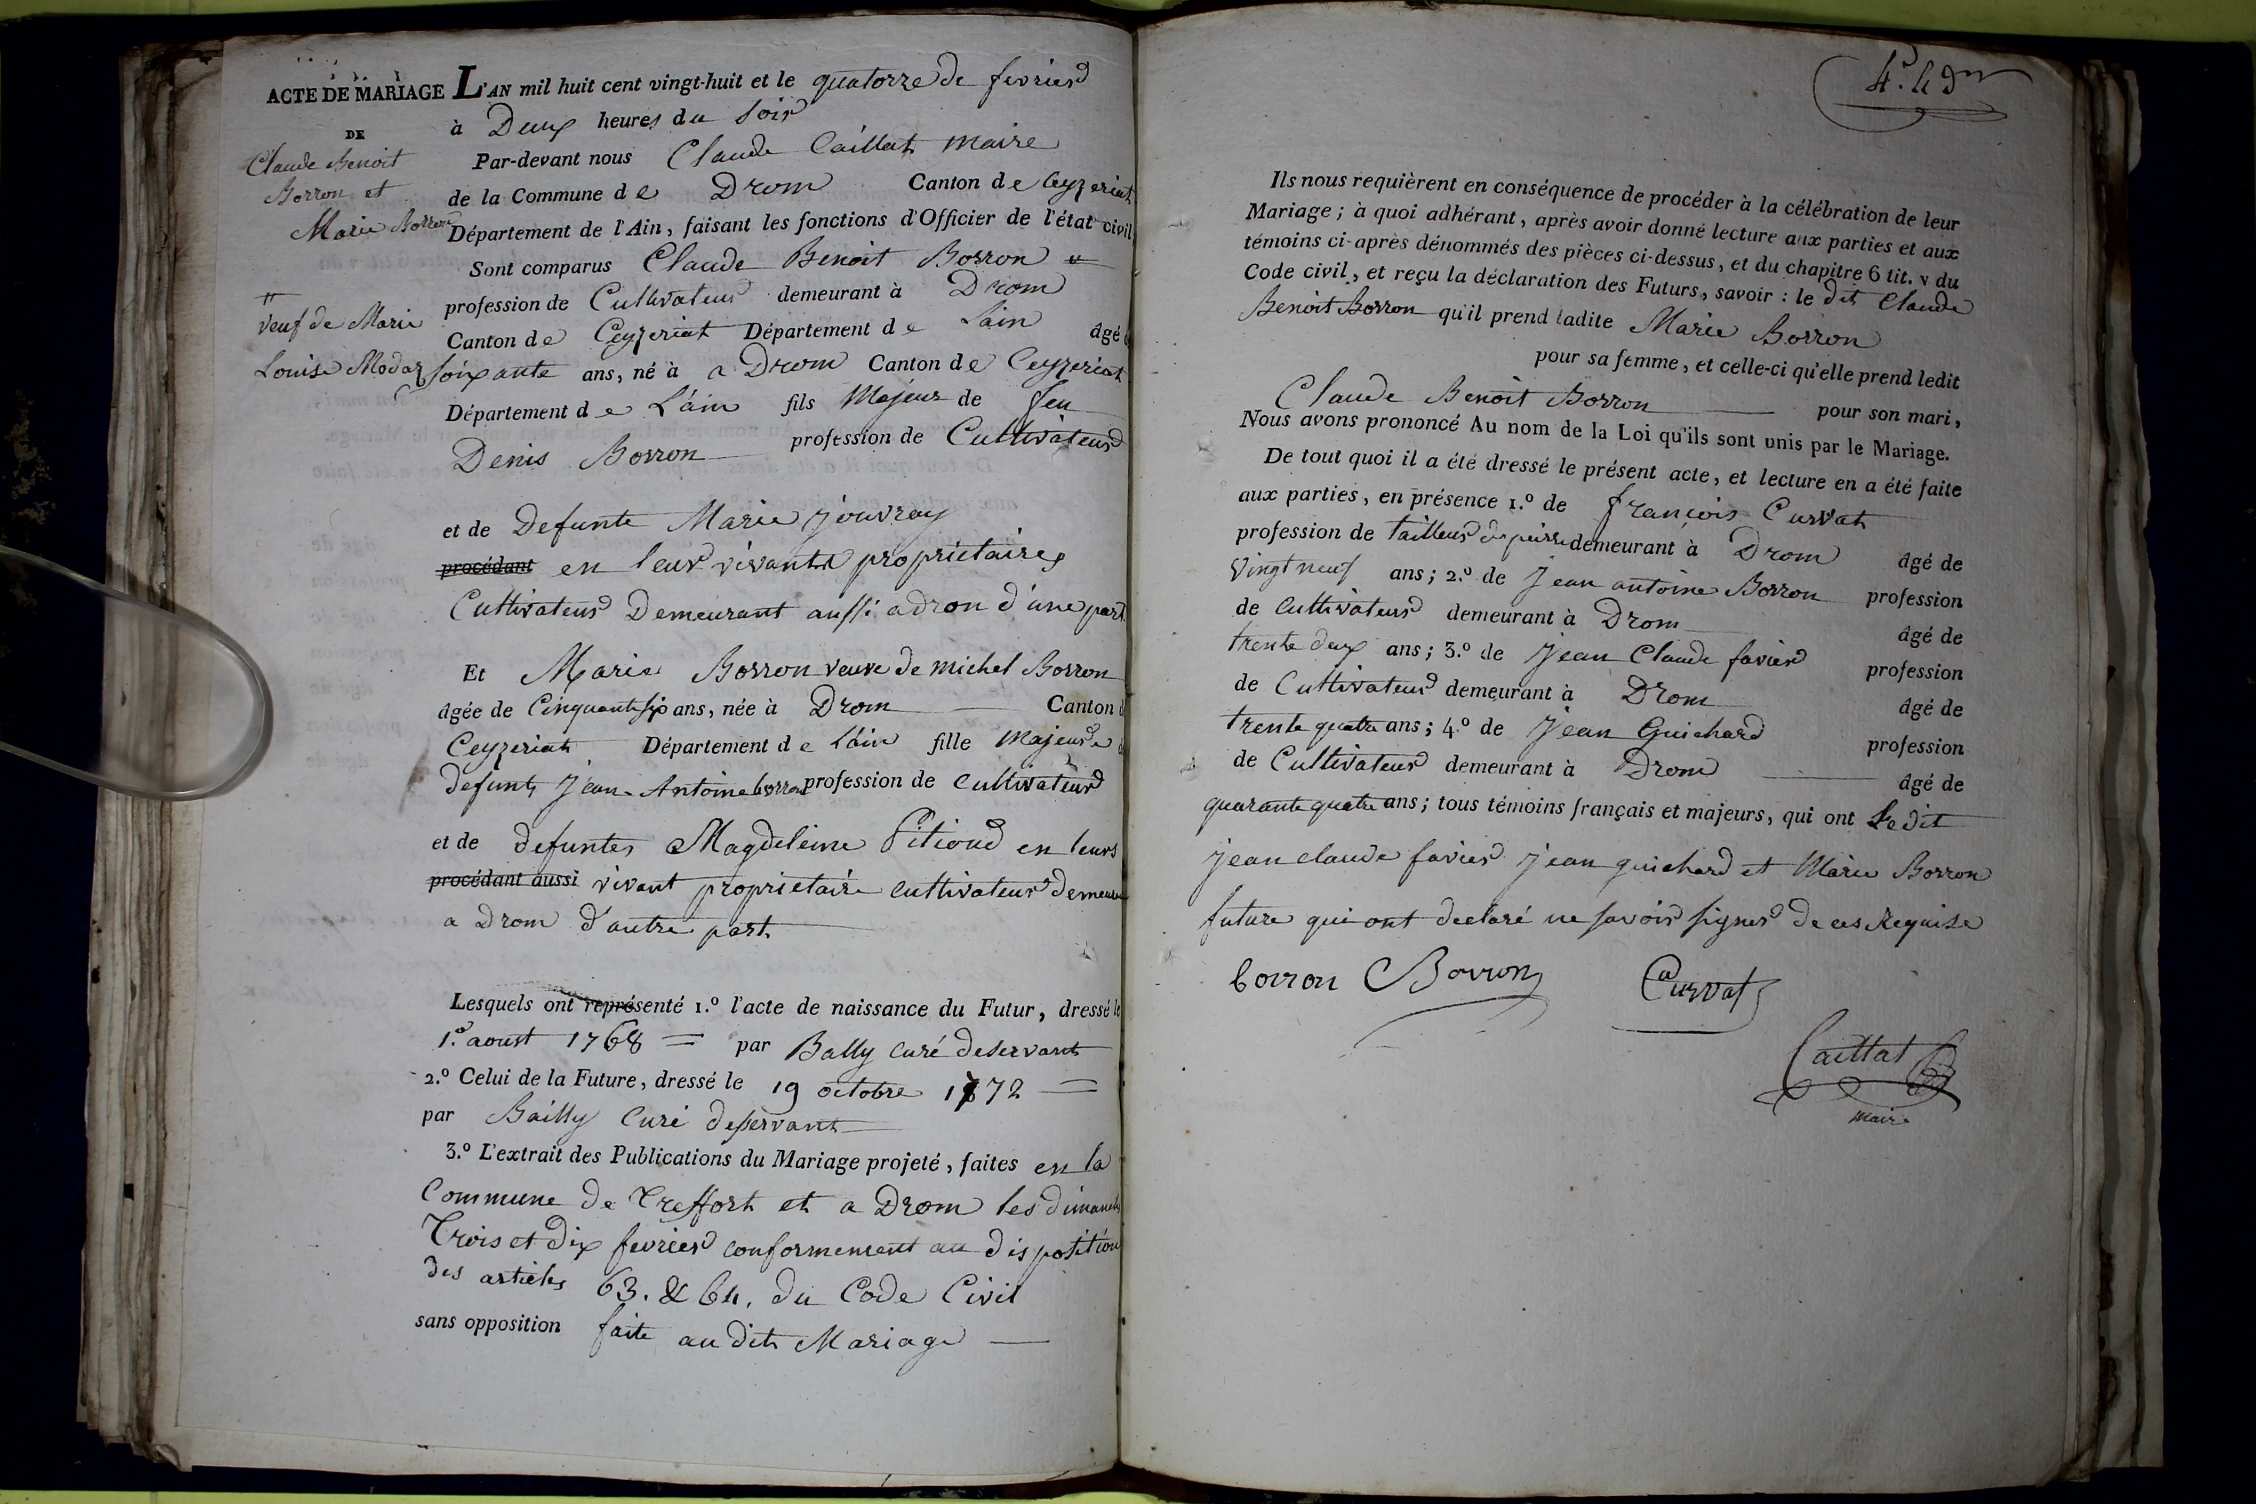 ACTE DE MARIAGE
DE
Claude Benoit
Borron et
Marie Borron
L'AN mil huit cent vingt-huit et le quatorze de fevrier
à Deux heures du soir
Par-devant nous Claude Caillat maire
de la Commune de Drom Canton de Ceyzeriat
Département de l'Ain, faisant les fonctions d'Officier de l'état civil
Sont comparus Claude Benoit Borron #
profession de Cultivateur demeurant à Drom
Canton de Ceyzeriat Département de Lain âgé
soixante ans, né à a Drom Canton de Ceyzeriat
Département de L'ain fils Majeur de feu
Denis Borron profession de Cultivateur
#
veuf de Marie
Louise Modaz
et de Defunte Marie Jouvray
procédant en leur vivants proprietaires
Cultivateur Demeurant aussi a dron d'une part
Et Marie Borron veuve de michel Borron
âgée de Cinquante six ans, née à Drom Canton
Ceyzeriat Département de l'ain fille Majeure
defunt Jean Antoine borron profession de cultivateur
et de defuntes Magdeleine Pitioud en leurs
procédant aussi vivant proprietaire cultivateur
a Drom d'autre part
Lesquels ont représenté 1.º l'acte de naissance du Futur, dressé le
1.er aoust 1768 = par Bally curé deservant
2.º Celui de la Future, dressé le 19 octobre 1772 =
par Bailly Curé desservant
3.º L'extrait des Publications du Mariage projeté, faites en la
Commune de Treffort et a Drom les dimanches
Trois et dix fevrier conformement au disposition
des articles 63. & 64. du Code Civil
sans opposition faite au dit Mariage
Ils nous requièrent en conséquence de procéder à la célébration de leur
Mariage; à quoi adhérant, après avoir donné lecture aux parties et aux
témoins ci-après dénommés des pièces ci-dessus, et du chapitre 6 tit. v du
Code civil, et reçu la déclaration des Futurs, savoir : le dit Claude
Benoit Borron qu'il prend ladite Marie Borron
pour sa femme, et celle-ci qu'elle prend ledit
Claude Benoit Borron pour son mari,
Nous avons prononcé Au nom de la Loi qu'ils sont unis par le Mariage.
De tout quoi il a été dressé le présent acte, et lecture en a été faite
aux parties, en présence 1.º de françois Curvat
profession de tailleur de peirre demeurant à Drom âgé de
vingt neuf ans; 2.º de Jean antoine Borron profession
de cultivateur demeurant à Drom âgé de
trente deux ans; 3.º de Jean Claude favier profession
de Cultivateur demeurant à Drom âgé de
trente quatre ans; 4.º de Jean Guichard profession
de Cultivateur demeurant à Drom âgé de
quarante quatre ans; tous témoins français et majeurs, qui ont Le dit
jean claude favier jean guichard et Marie Borron
future qui ont declaré ne savoir signer de ces Requise
borron Borron Curvat
Caillat
maire